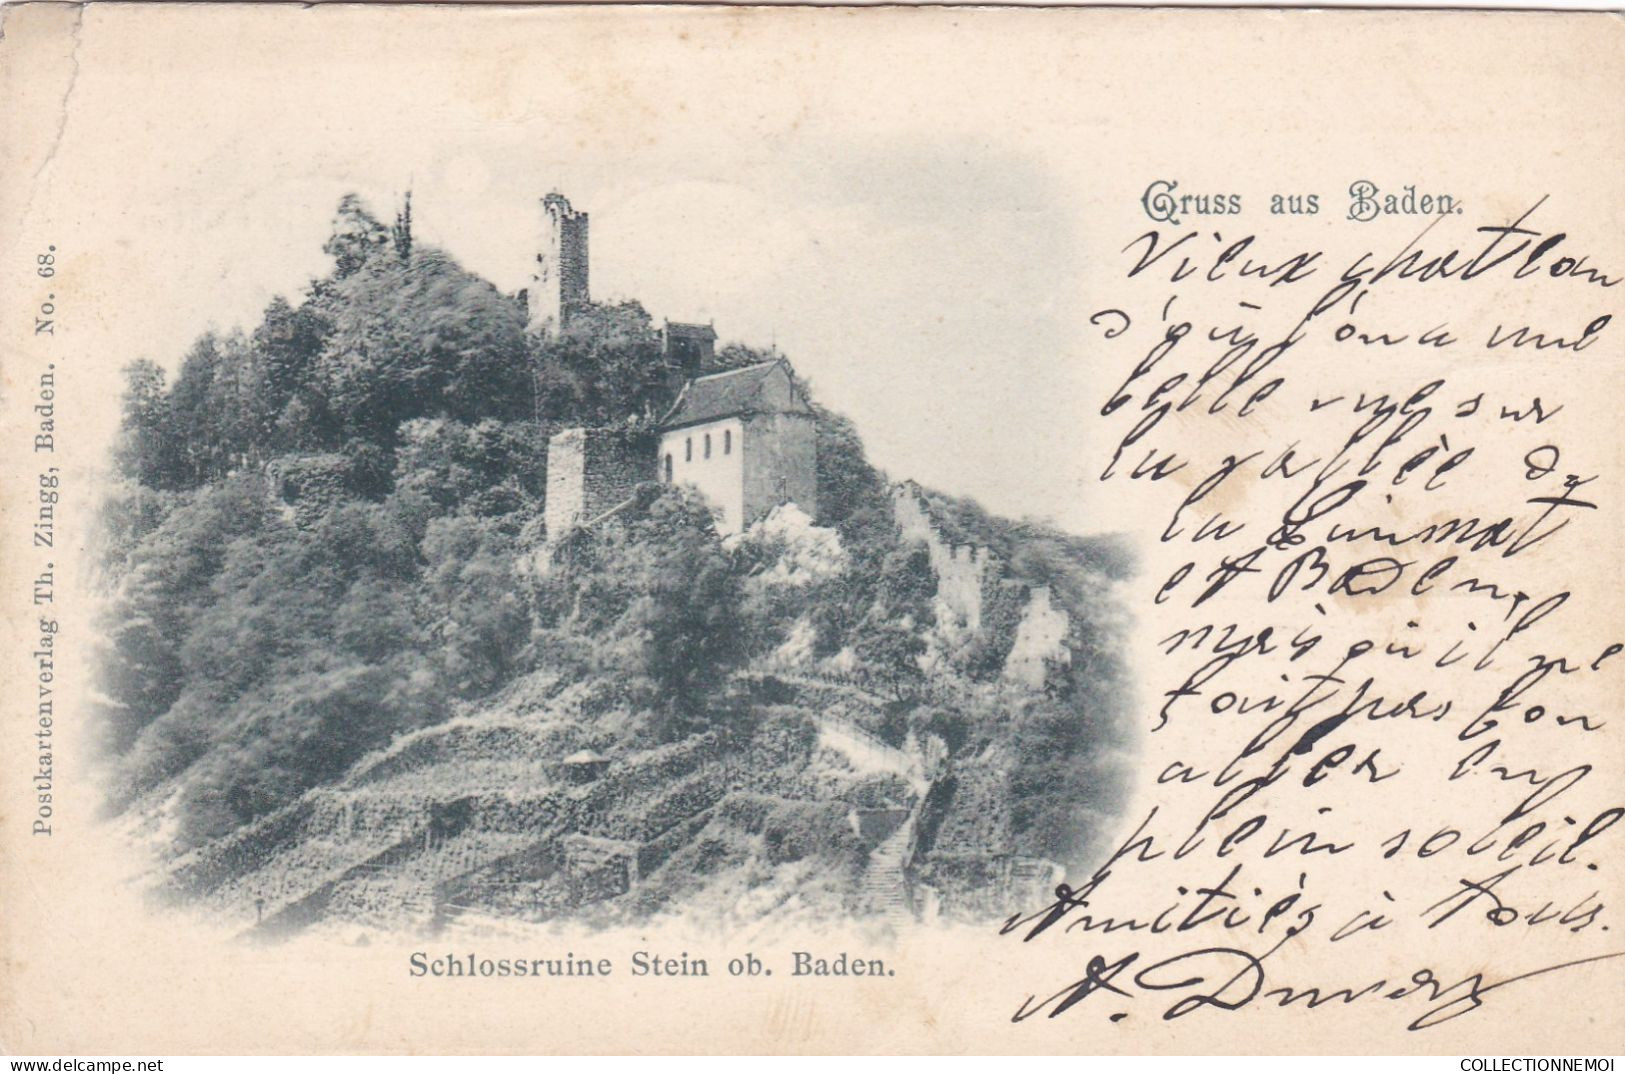 Gruss aus Baden.
Vieux chateau
d'où l'on a une
belle vue sur
la vallée de
la Limmat
et Baden,
mais qu'il ne
fait pas bon
aller en
plein soleil.
Amitiés à tous.
A.
Schlossruine Stein ob. Baden.
Postkartenverlag Th. Zingg, Baden. No. 68.
delcampe.net
COLLECTIONNEMOI